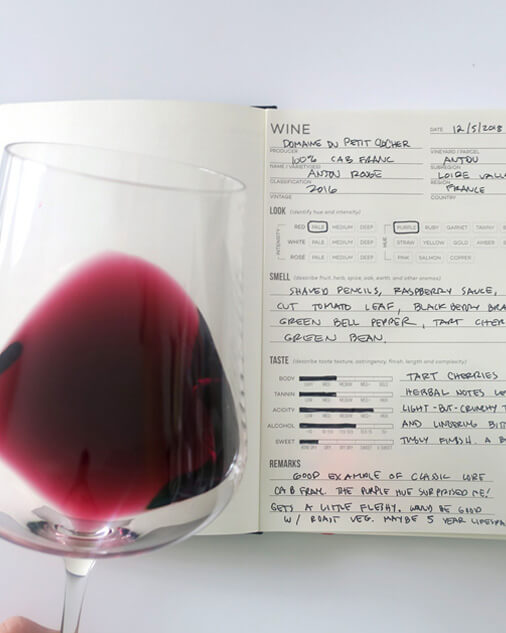 WINE
DATE 12/5/2018
DOMAINE DU PETIT CLOCHER
PRODUCER VINEYARD / PARCEL
100% CAB FRANC ANJOU
NAME / VARIETY(IES) SUBREGION
ANJOU ROUGE LOIRE VALL
CLASSIFICATION REGION
2016 FRANCE
VINTAGE COUNTRY
LOOK (identify hue and intensity)
INTENSITY RED PALE MEDIUM DEEP HUE PURPLE RUBY GARNET TAWNY
WHITE PALE MEDIUM DEEP STRAW YELLOW GOLD AMBER
ROSÉ PALE MEDIUM DEEP PINK SALMON COPPER
SMELL (describe fruit, herb, spice, oak, earth, and other aromas)
SHAVED PENCILS, RASPBERRY SAUCE,
CUT TOMATO LEAF, BLACKBERRY BRA
GREEN BELL PEPPER, TART CHER
GREEN BEAN.
TASTE (describe taste texture, astringency, finish, length and complexity)
BODY TART CHERRIES
LOW MED- MEDIUM MED+ BOLD
TANNIN HERBAL NOTES
LOW MED- MEDIUM MED+
ACIDITY LIGHT-BUT-CRUNCHY T
LOW MED- MEDIUM MED+
ALCOHOL AND LINGERING BIT
SWEET FINISH. A B
REMARKS
GOOD EXAMPLE OF CLASSIC LOIRE
CAB FRANC. THE PURPLE HUE SURPRISED ME!
GETS A LITTLE FLESHY. WOULD BE GOOD
W/ ROAST VEG. MAYBE 5 YEAR LIFESPA